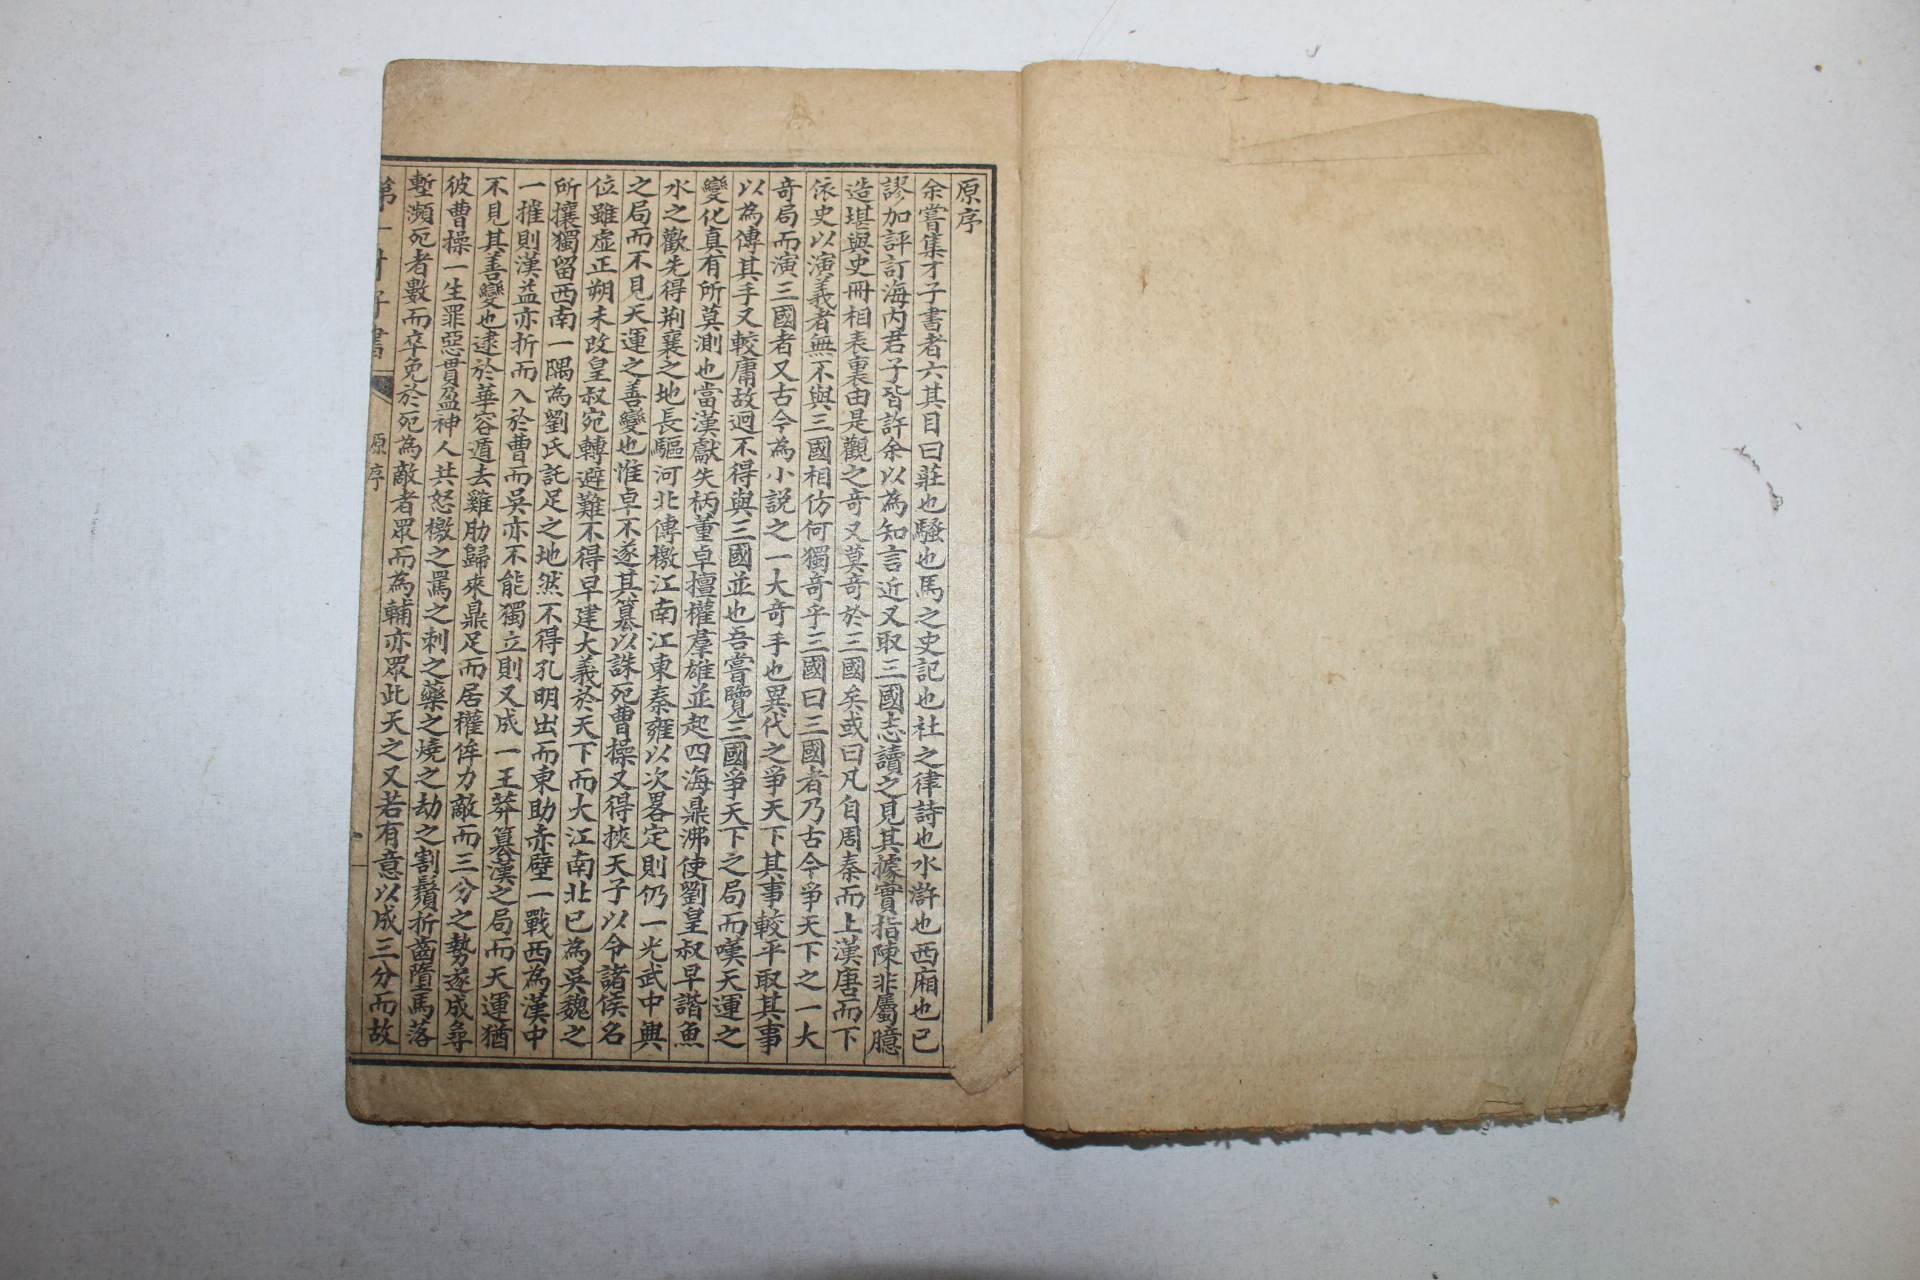 原序
余嘗集才子書者六其目曰莊也騷也馬之史記也杜之律詩也水滸也西廂也已
謬加評訂海內君子皆許余以為知言近又取三國志讀之見其據實指陳非屬臆
造堪與史冊相表裏由是觀之奇又莫奇於三國矣或曰凡自周秦而上漢唐而下
依史以演義者無不與三國相仿何獨奇乎三國曰三國者乃古今爭天下之一大
奇局而演三國者又古今為小說之一大奇手也異代之爭天下其事較平取其事
以為傳其手又較庸故迥不得與三國並也吾嘗覽三國爭天下之局而嘆天運之
變化真有所莫測也當漢獻失柄董卓擅權羣雄並起四海鼎沸使劉皇叔早諧魚
水之歡先得荆襄之地長驅河北傳檄江南江東秦雍以次畧定則仍一光武中興
之局而不見天運之善變也惟卓不遂其篡以誅死曹操又得挾天子以令諸侯名
位雖虛正朔未改皇叔宛轉避難不得早建大義於天下而大江南北已為吳魏之
所攘獨留西南一隅為劉氏託足之地然不得孔明出而東助赤壁一戰西為漢中
一摧則漢益亦折而入於曹而吳亦不能獨立則又成一王莽篡漢之局而天運猶
不見其善變也逮於華容遁去雞肋歸來鼎足而居權侔力敵而三分之勢遂成尋
彼曹操一生罪惡貫盈神人共怒檄之罵之刺之藥之燒之劫之割鬚折齒墮馬落
塹瀕死者數而卒免於死為敵者眾而為輔亦眾此天之又若有意以成三分而故
第一才子書 原序